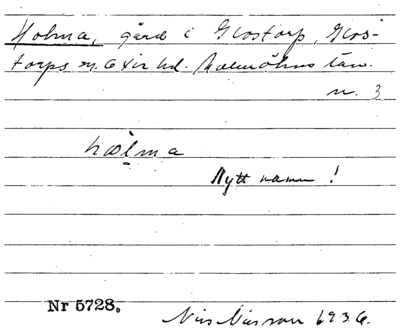 Holma, gård i Glostorp, Glos-
torps sn. Oxie hd. Malmöhus län.
n. 3
hålma
Nytt namn!
Nr 5728.
Nils Nilsson 1936.